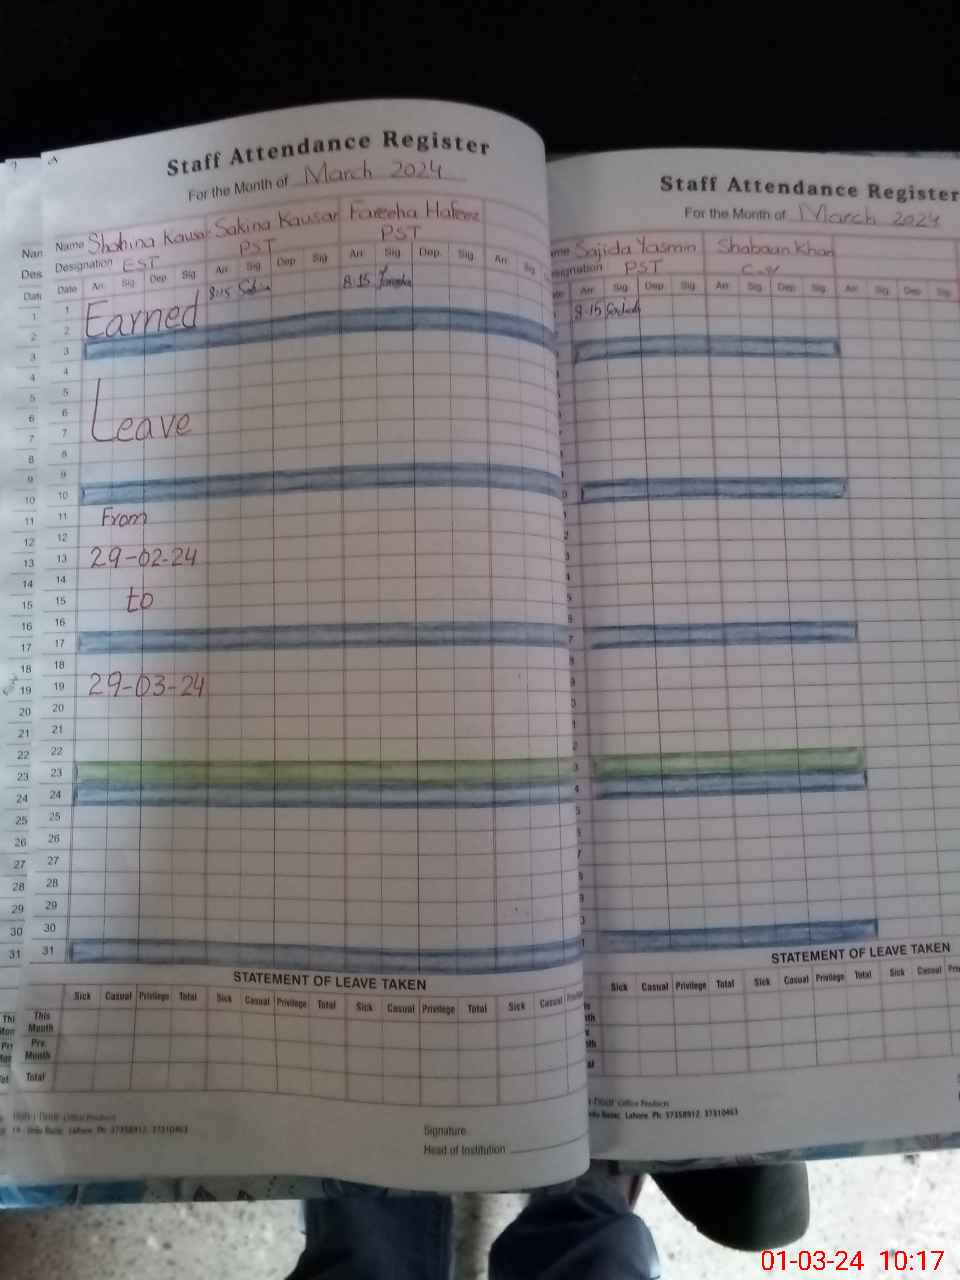 Staff Attendance Register
For the Month of March 2024
Name Shahina Kausar Sakina Kausar Fareeha Hafeez
Designation EST PST PST
Date Arr. Sig. Dep. Sig. Arr. Sig. Dep. Sig. Arr. Sig. Dep. Sig. Arr. Sig.
1 8:15 8:15
Earned
2
3
4
5
6
Leave
7
8
9
10
11 From
12
13 29-02-24
14
15 to
16
17
18
19 29-03-24
20
21
22
23
24
25
26
27
28
29
30
31
STATEMENT OF LEAVE TAKEN
Sick Casual Privilege Total Sick Casual Privilege Total Sick Casual Privilege Total Sick Casual
This Month
Prv. Month
Total
Urdu Bazar, Lahore. Ph: 37358912, 37310463
Signature
Head of Institution
Staff Attendance Register
For the Month of March 2024
Sajida Yasmin Shabaan Khan
PST
Arr. Sig. Dep. Sig. Arr. Sig. Dep. Sig. Arr. Sig. Dep. Sig.
8:15
STATEMENT OF LEAVE TAKEN
Sick Casual Privilege Total Sick Casual Privilege Total Sick Casual
Office Products
Urdu Bazar, Lahore. Ph: 37358912, 37310463
Nan
Des
Date
1
2
3
4
5
6
7
8
9
10
11
12
13
14
15
16
17
18
19
20
21
22
23
24
25
26
27
28
29
30
31
01-03-24 10:17